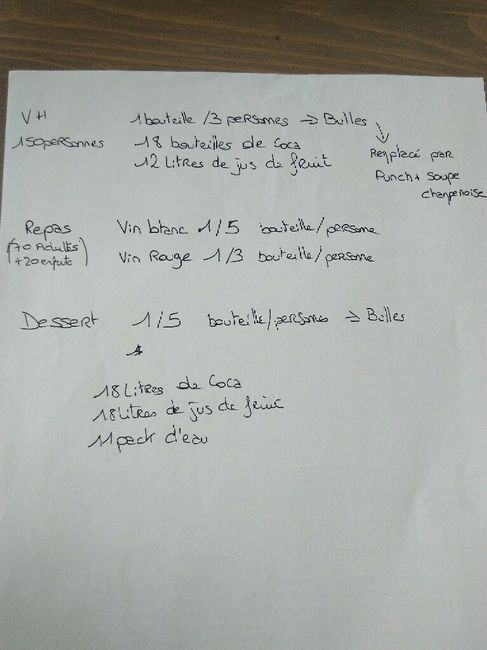 VH 1 bouteille / 3 personnes → Bulles
150 personnes 18 bouteilles de Coca
12 Litres de jus de fruit
Remplacé par
Punch + Soupe
champenoise
Repas Vin blanc 1/5 bouteille/personne
(70 Adultes
+ 20 enfants) Vin Rouge 1/3 bouteille/personne
Dessert 1/5 bouteille/personnes → Bulles
18 Litres de Coca
18 Litres de jus de fruit
11 pack d'eau